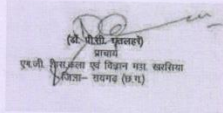 (डॉ. पी.सी. घृतलहरे)
प्राचार्य
एम.जी. शास.कला एवं विज्ञान महा. खरसिया
जिला- रायगढ़ (छ.ग.)